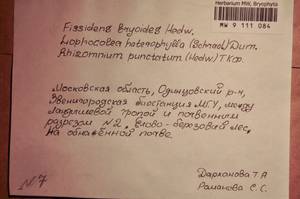 Herbarium MW, Bryophyta
MW 9 111 084
Fissidens bryoides Hedw.
Lophocolea heterophylla (Schrad.) Dum.
Rhizomnium punctatum (Hedw.) T.Kop.
Московская область, Одинцовский р-н,
Звенигородская биостанция МГУ, между
тропой и почвенным
разрезом №2, елово-березовый лес,
на обнажённой почве.
№7
Дарханова Т А
Романова Е. С.